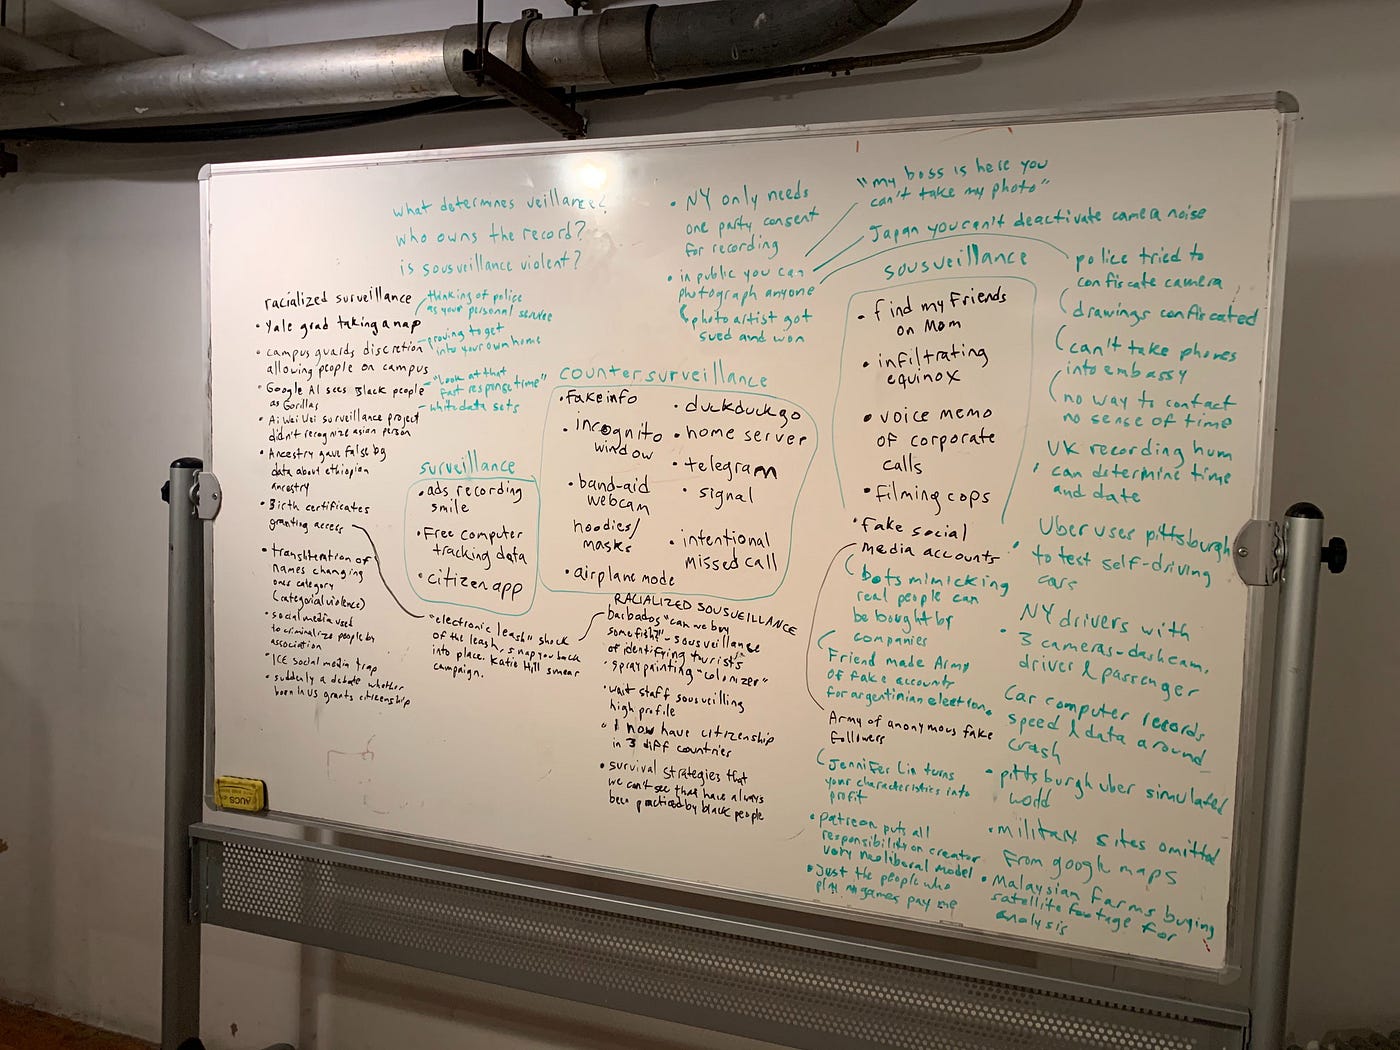 what determines veillance?
who owns the record?
is sousveillance violent?
racialized surveillance
thinking of police
as your personal service
• Yale grad taking a nap
proving to get
into your own home
• campus guards discretion
allowing people on campus
"Look at that
fast response time"
• Google AI sees Black people
as Gorillas
white data sets
• Ai Wei Wei surveillance project
didn't recognize asian person
• Ancestry gave false bg
data about ethiopian
ancestry
• Birth certificates
granting access
• transliteration of
names changing
ones category
(categorical violence)
• social media used
to criminalize people by
association
• ICE social media trap
• suddenly a debate whether
born in US grants citizenship
surveillance
• ads recording
smile
• Free computer
tracking data
• citizen app
"electronic leash" shock
of the leash, snap you back
into place. Katie Hill smear
campaign.
countersurveillance
• fake info
• incognito
window
• band-aid
webcam
hoodies/
masks
• airplane mode
• duckduckgo
• home server
• telegram
• signal
• intentional
missed call
RACIALIZED SOUSVEILLANCE
barbados "can we buy
some fish?" - sousveillance
of identifying tourists
• spray painting "colonizer"
• wait staff sousveilling
high profile
• "I now have citizenship
in 3 diff countries
• survival strategies that
we can't see that have always
been practiced by black people
• NY only needs
one party consent
for recording
• in public you can
photograph anyone
photo artist got
sued and won
"my boss is here you
can't take my photo"
Japan you can't deactivate camera noise
sousveillance
• find my friends
on Mom
• infiltrating
equinox
• voice memo
of corporate
calls
• filming cops
• fake social
media accounts
bots mimicking
real people can
be bought by
companies
Friend made Army
of fake accounts
for argentinian election
Army of anonymous fake
followers
Jennifer Lin turns
your characteristics into
profit
• patreon puts all
responsibility on creator
very neoliberal model
• Just the people who
play my games pay me
police tried to
confiscate camera
drawings confiscated
can't take phones
into embassy
no way to contact
no sense of time
UK recording hum
• can determine time
and date
• Uber uses pittsburgh
to test self-driving
cars
• NY drivers with
3 cameras - dashcam,
driver & passenger
• Car computer records
speed & data around
crash
• pittsburgh uber simulated
world
• military sites omitted
from google maps
• Malaysian farms buying
satellite footage for
analysis